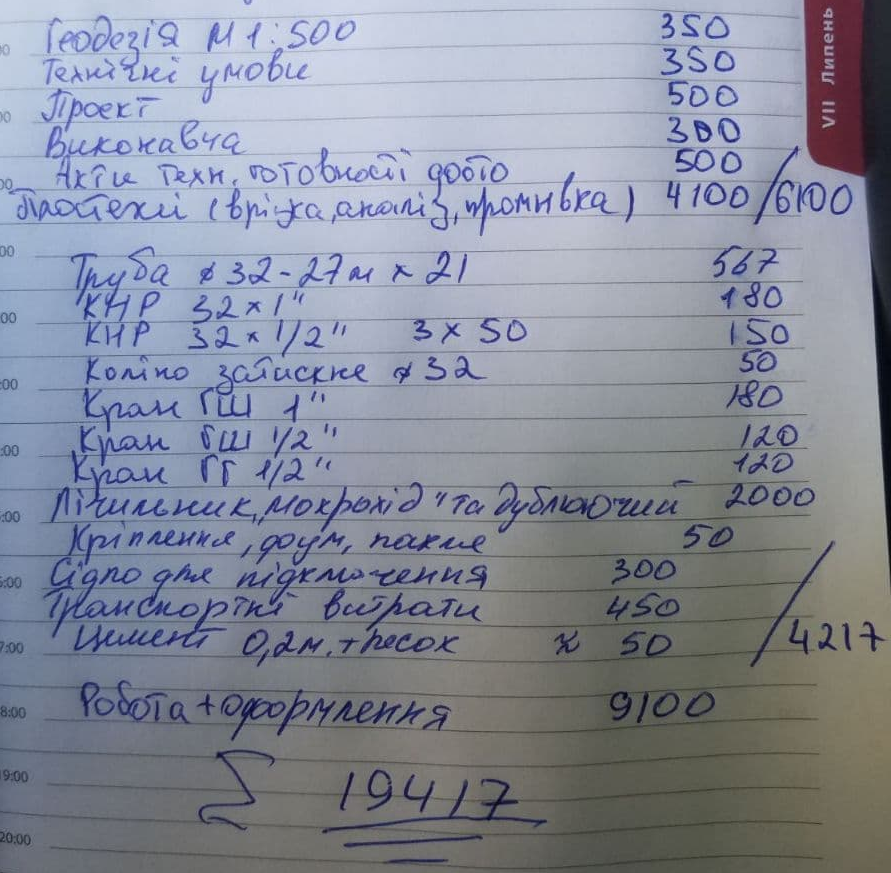 Геодезія М 1:500 350
Технічні умови 350
Проект 500
Виконавча 300
Акти техн. готовності 500
(врізка, аналіз, промивка) 4100/6100
Труба ⌀32-27м x 21 567
КНР 32x1" 180
КНР 32x1/2" 3 x 50 150
Коліно затискне ⌀32 50
Кран ГШ 1" 180
Кран ГШ 1/2" 120
Кран ГГ 1/2" 120
Лічильник „мокрохід" та дублюючий 2000
Кріплення, фум, пакля 50
Сідло для підключення 300
Транспортні витрати 450
Цемент 0,2м.+песок 50 /4217
Робота+оформлення 9100
Σ 19417
VII Липень
7:00
8:00
19:00
20:00